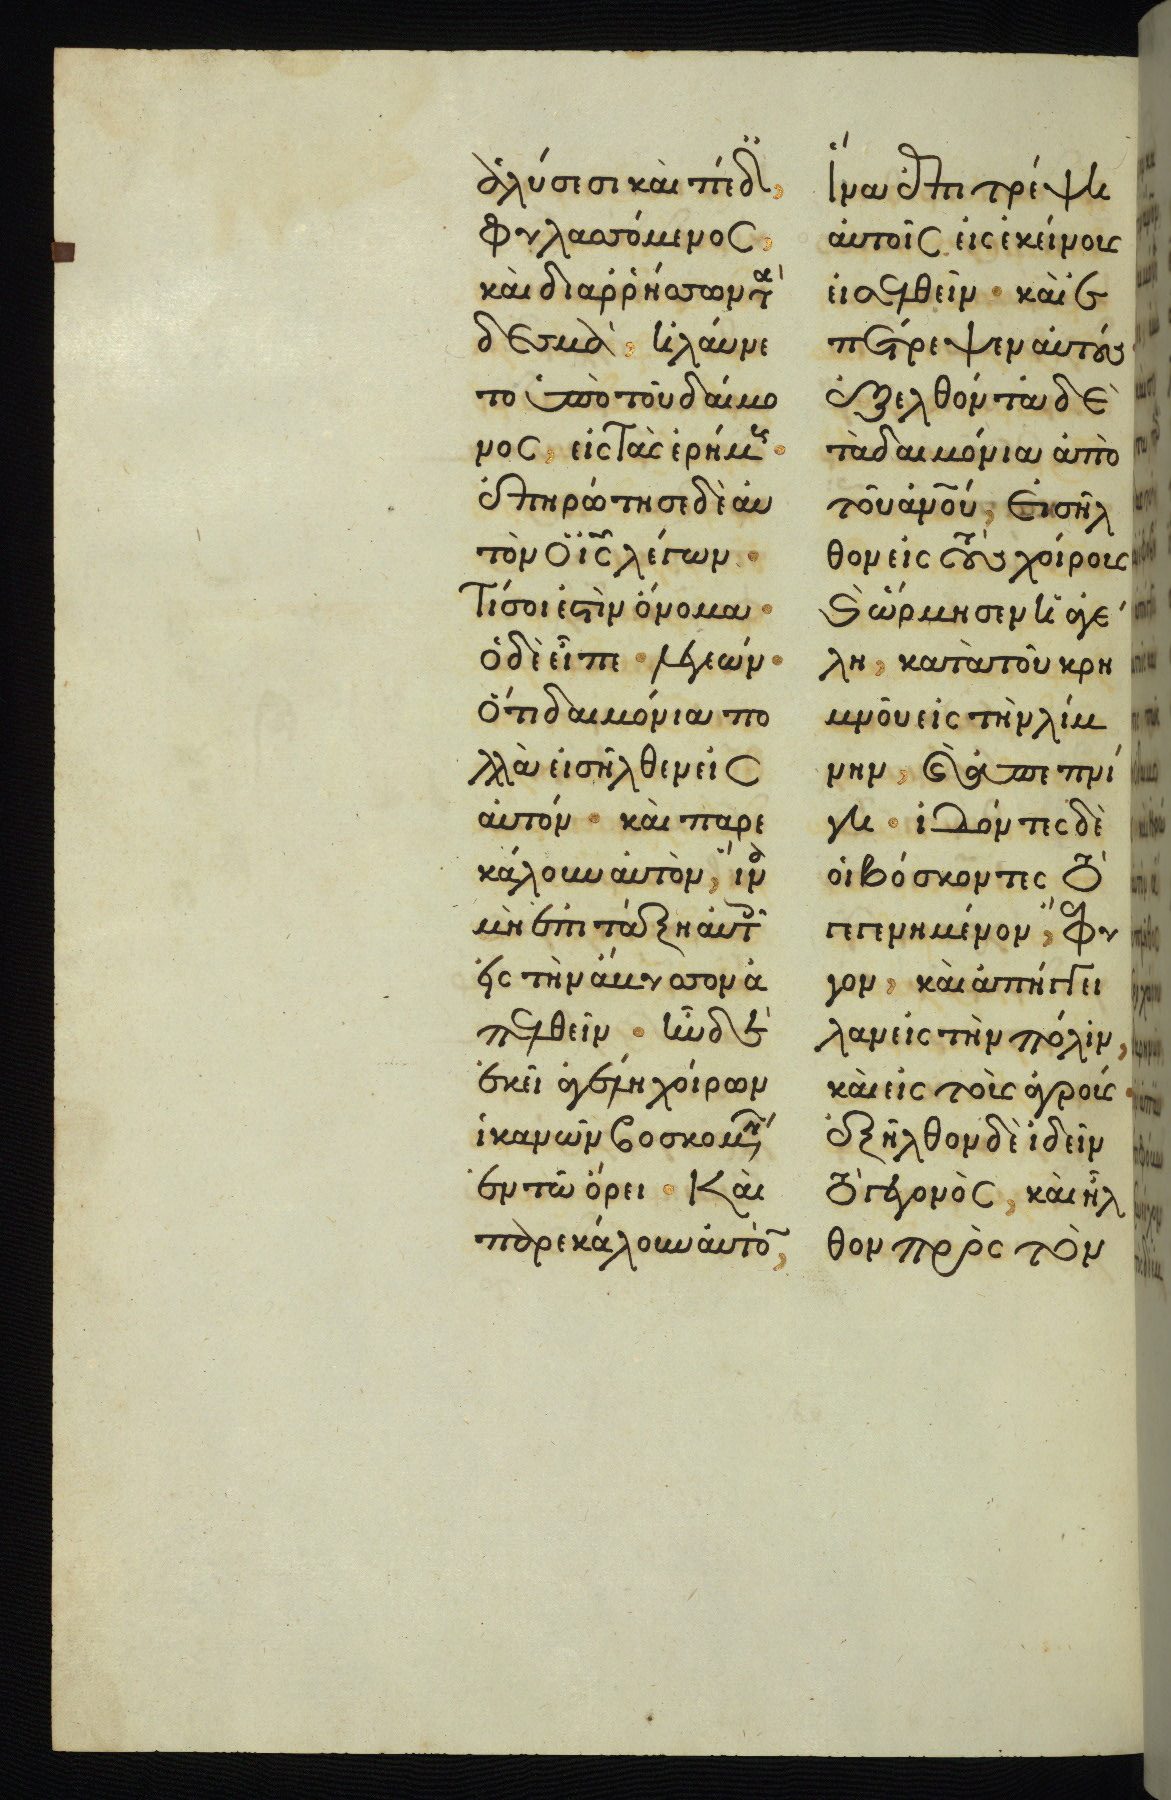 ἁλύσεσι καὶ πέδαις,
φυλασσόμενος,
καὶ διαρρήσσων τὰ
δεσμὰ, ἠλαύνε
το ὑπὸ τοῦ δαίμο
νος, εἰς τὰς ἐρήμους·
ἐπηρώτησε δὲ αὐ
τὸν ὁ ις λέγων·
Τί σοι ἐστὶν ὄνομα·
ὁ δὲ εἶπε· λεγεών·
ὅτι δαιμόνια πο
λλὰ εἰσῆλθεν εἰς
αὐτόν· καὶ παρε
κάλουν αὐτὸν, ἵνα
μὴ ἐπιτάξῃ αὐτοῖς
εἰς τὴν ἄβυσσον ἀ
πελθεῖν· ἦν δὲ
ἐκεῖ ἀγέλη χοίρων
ἱκανῶν βοσκομένη
ἐν τῶ ὄρει· Καὶ
παρεκάλουν αὐτὸν,
ἵνα ἐπιτρέψη
αὐτοῖς εἰς ἐκείνους
εἰσελθεῖν· καὶ ἐ
πέτρεψεν αὐτούς
ἐξελθόντα δὲ
τὰ δαιμόνια ἀπὸ
τοῦ ανου, εἰσῆλ
θον εἰς τοὺς χοίρους
καὶ ὥρμησεν ἡ ἀγέ
λη, κατὰ τοῦ κρη
μνοῦ εἰς τὴν λίμ
νην, καὶ ἀπεπνί
γη· ἰδόντες δὲ
οἱ βόσκοντες τὸ
γεγενημένον, ἔφυ
γον, καὶ ἀπήγγει
λαν εἰς τὴν πόλιν,
καὶ εἰς τοὺς ἀγρούς·
ἐξῆλθον δὲ ἰδεῖν
τὸ γεγονὸς, καὶ ἦλ
θον πρὸς τὸν